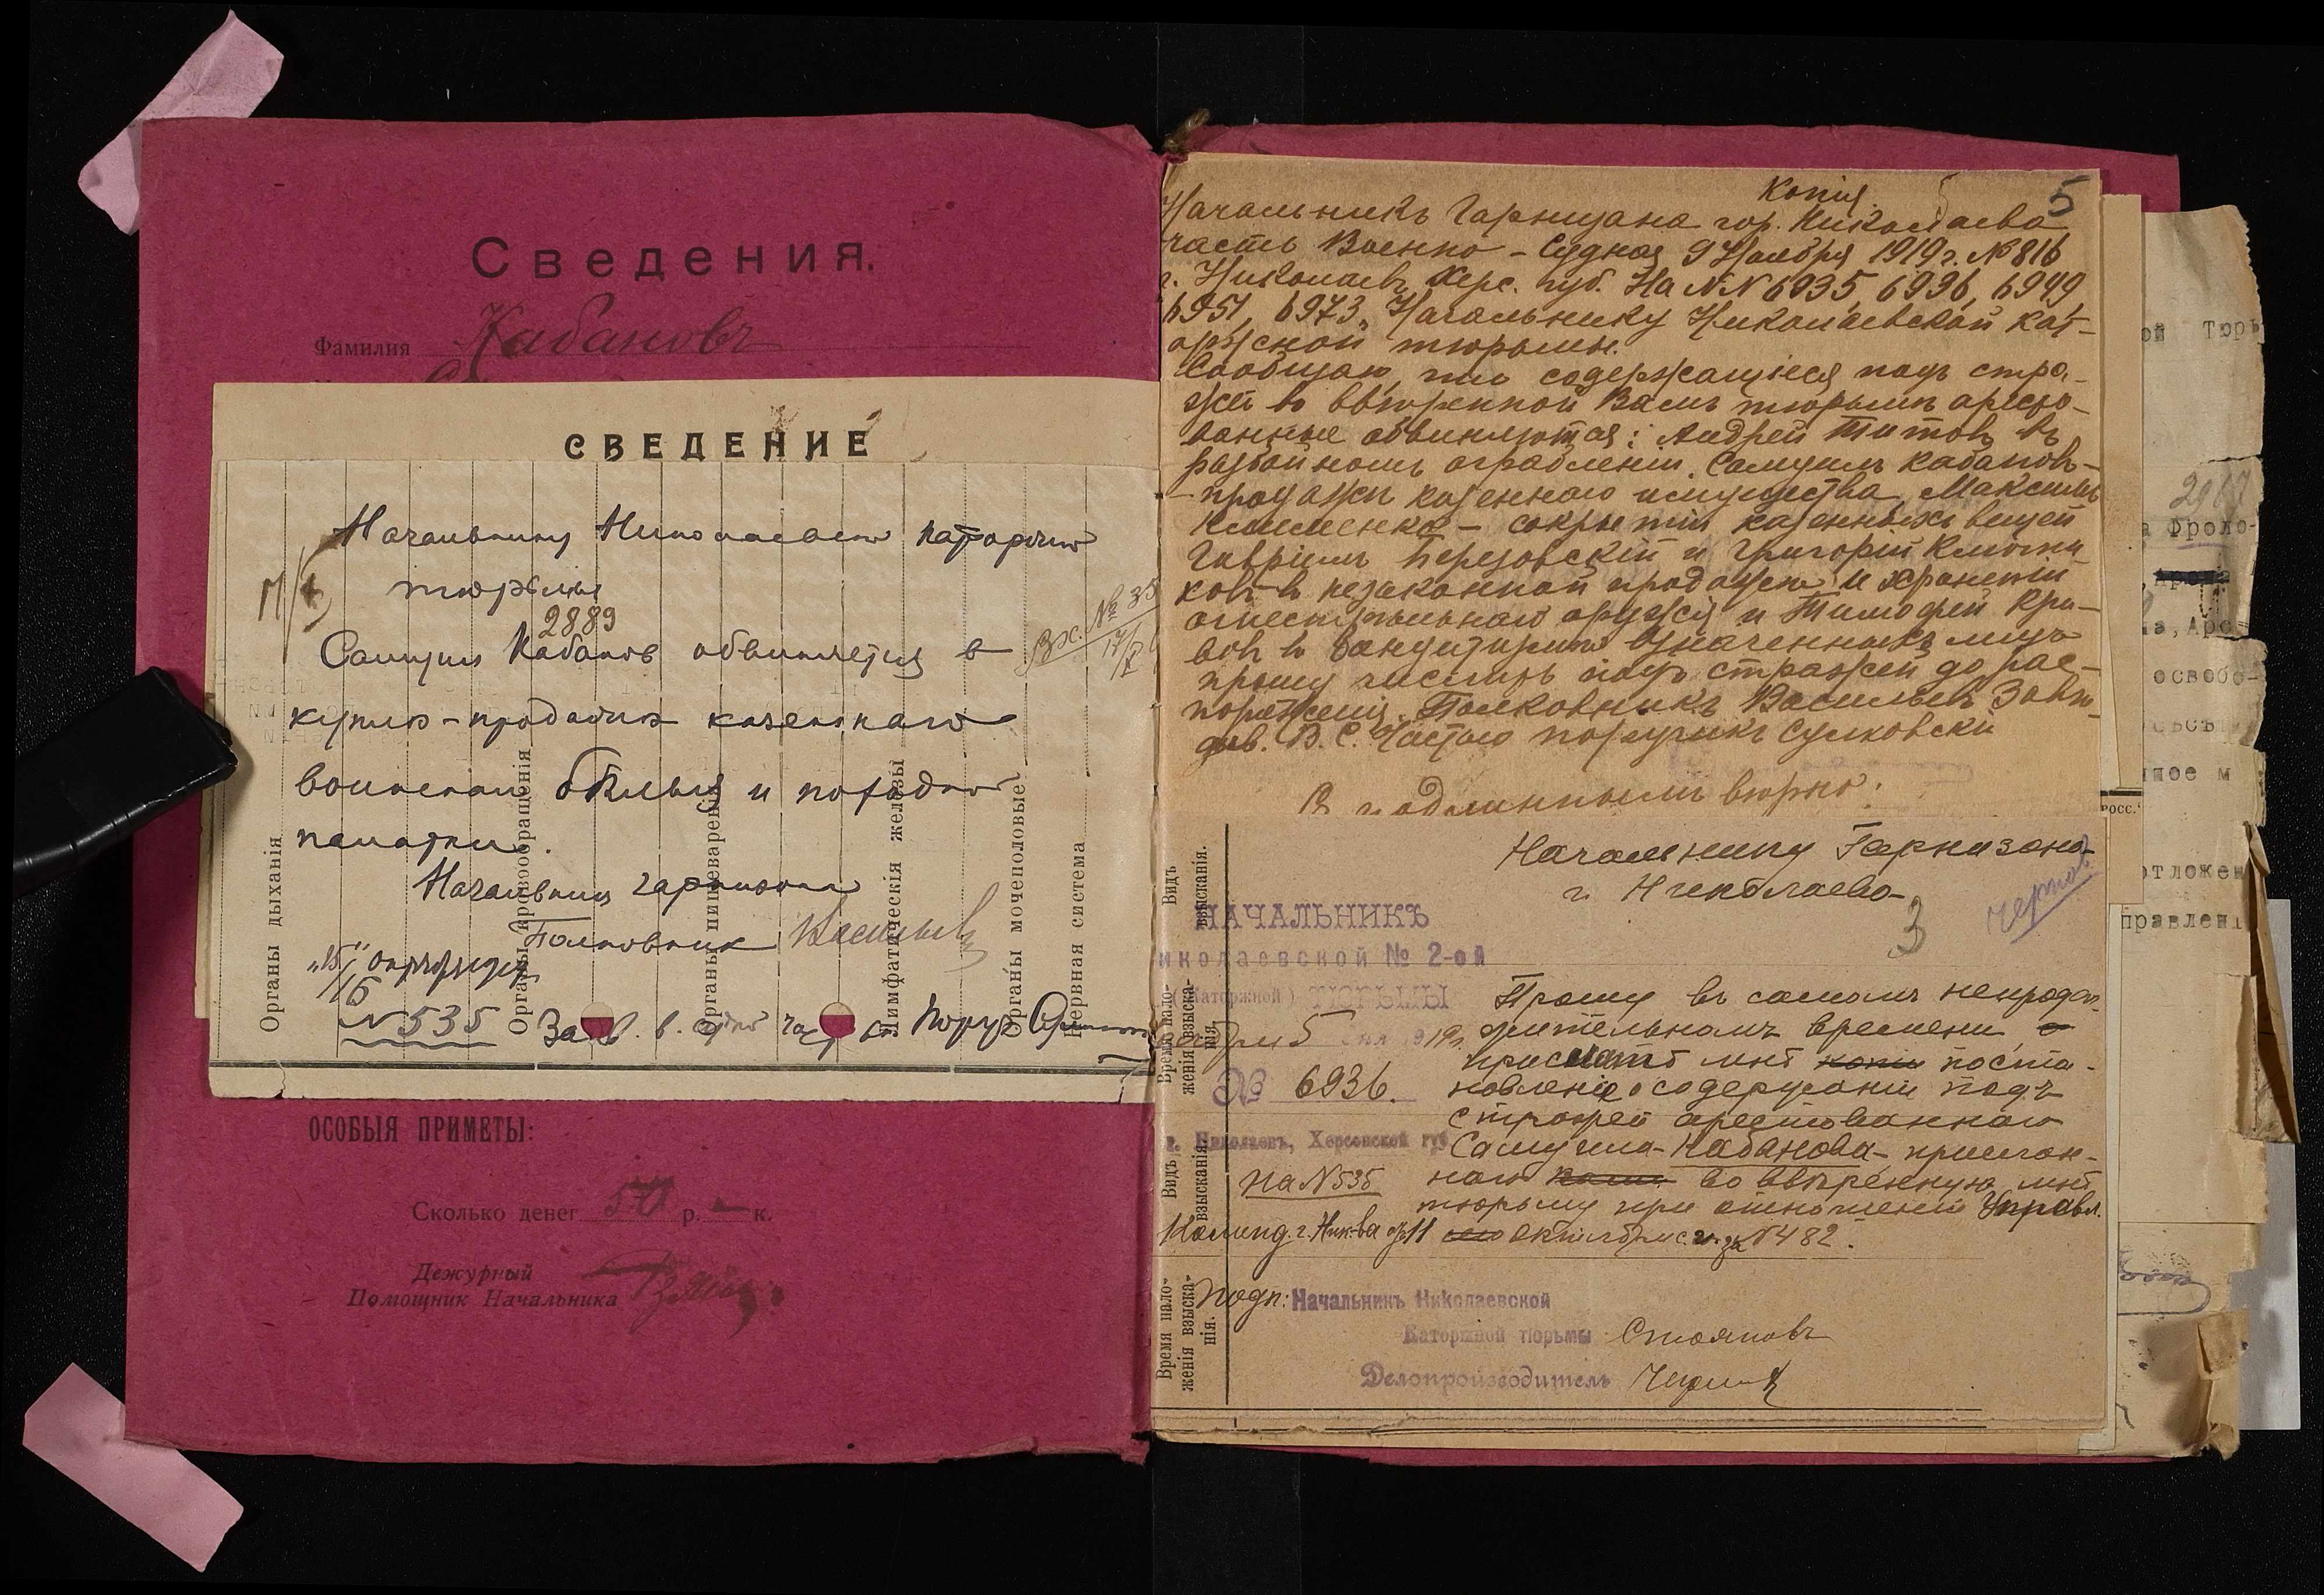 Сведения.
Фамилия Кабановъ
СВЕДЕНИЕ
Начальнику Николаевской каторжной
тюрьмы
2889
Вх. № 35
17/X
Самуил Кабанов обвиняется в
купле-продаже казенного
воинского бѣлья и походной
палатки.
Начальник гарнизона
Полковник Васильев
"15" октября
№ 535 Зав. в. судной час Поруч
Органы дыханія
Органы кровообращенія
Органы пищеваренія
Лимфатическія железы
Органы мочеполовые
Нервная система
ОСОБЫЯ ПРИМЕТЫ:
Сколько денег 50 р. — к.
Дежурный
Помощник Начальника
Копія.
5
Начальникъ Гарнизона гор. Николаева
часть Военно-Судная 9 Ноября 1919 г. № 816
г. Николаевъ Херс. губ. На №№ 6935, 6936, 6949,
6951, 6973. Начальнику Николаевской Кат-
оржной тюрьмы.
Сообщаю, что содержащіеся подъ стра-
жей во ввѣренной Вамъ тюрьмѣ аресто-
ванные обвиняются: Андрей Титовъ въ
разбойномъ ограбленіи, Самуилъ Кабановъ-
продажѣ казеннаго имущества, Максимъ
Клименко - сокрытіи казенныхъ вещей
Гавріилъ Березовскій и Григорій Ключни-
ковъ-въ незаконной продажѣ и храненіи
огнестрѣльнаго оружія и Тимофей Кри-
вовъ въ бандитизмѣ. Означенныхъ лицъ
прошу числить подъ стражей до рас-
поряженія. Полковникъ Васильевъ Завѣ-
дыв. В. С. Частью поручикъ Сулковскій
Съ подлиннымъ вѣрно:
Начальнику Гарнизона
г. Николаева
3
Чернов.
НАЧАЛЬНИКЪ
иколаевской № 2-ой
(Каторжной) ТЮРЬМЫ
5 191 г.
№ 6936.
г. Николаевъ, Херсонской губ.
На № 535
Прошу въ самомъ непродол-
жительномъ времени о
прислать мнѣ копи поста-
новленіе о содержаніи подъ
стражей арестованнаго
Самуила Кабанова-прислан-
наго во ввѣренную мнѣ
тюрьму при отношеніи Управл.
Коменд. г. Ник-ва отъ 11 Октября с.г. за № 482.
Подп: Начальникъ Николаевской
Каторжной тюрьмы Стояновъ
Делопроизводитель
Видъ взысканія.
Время нало-
женія взыска-
нія.
Видъ взысканія.
Время нало-
женія взыска-
нія.
ой Тюрь
2967
а Фроло-
а, Аро
освобо-
ное м
РОСС.
отложен
правлені